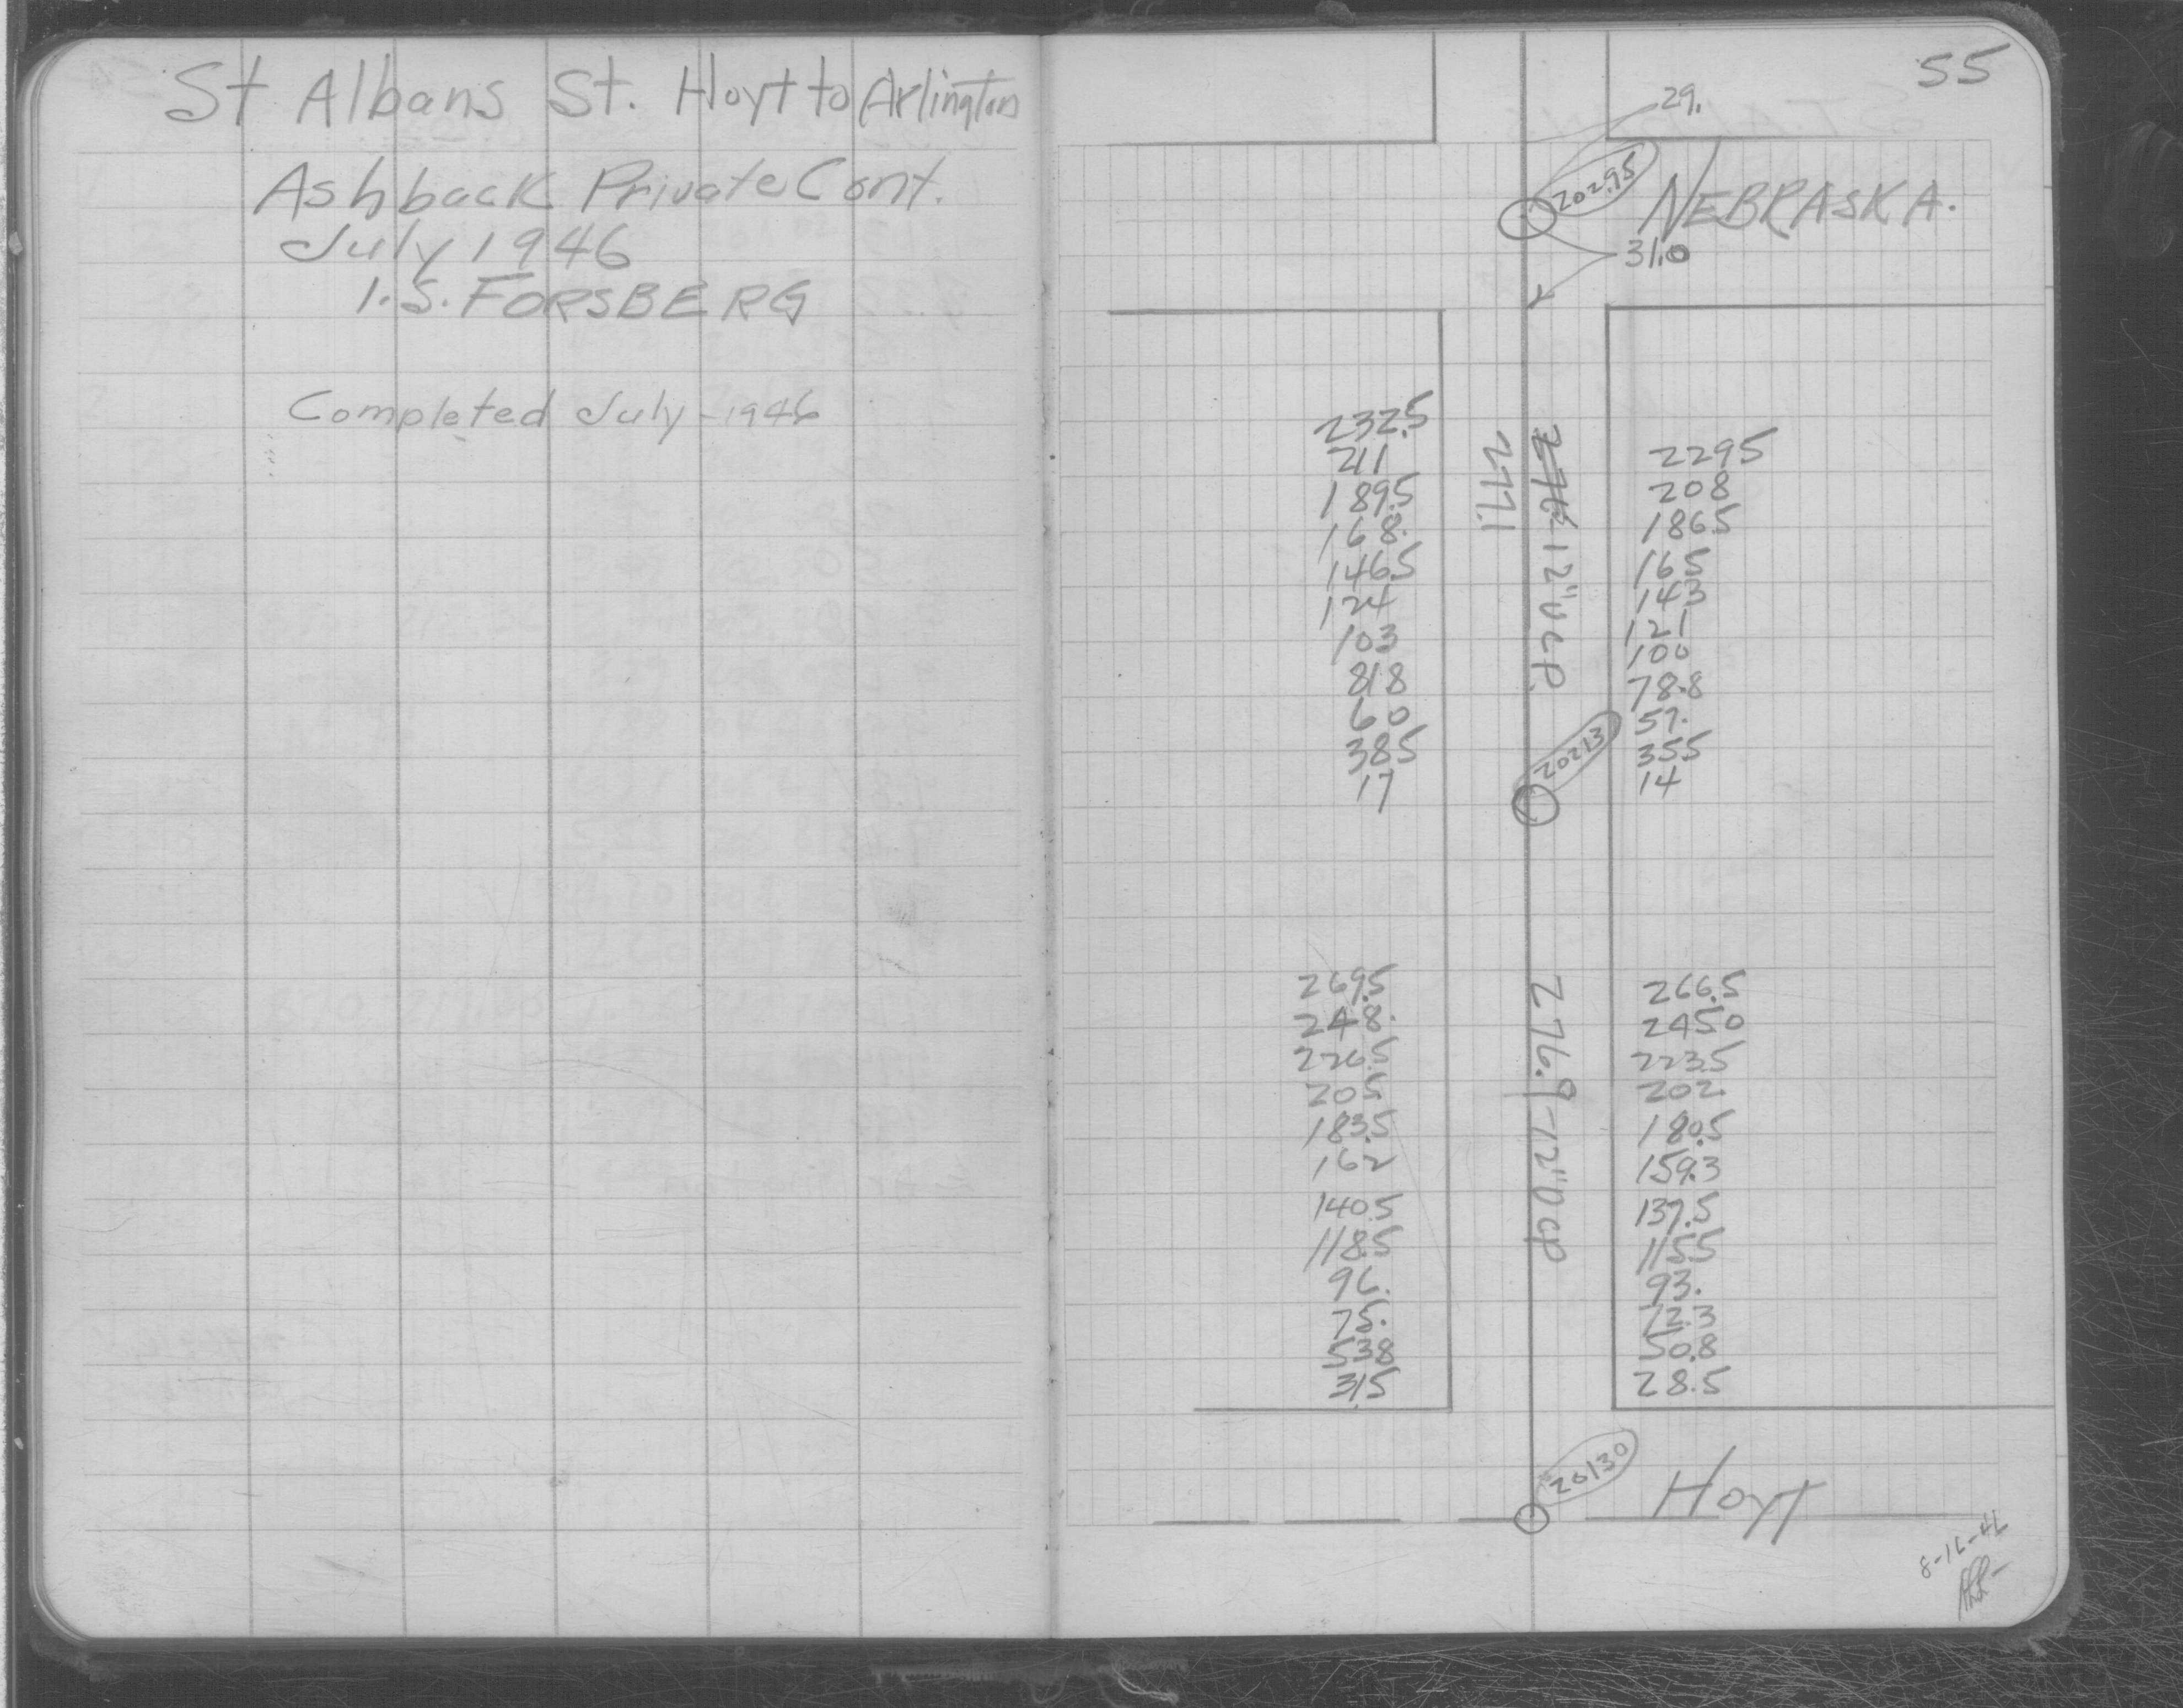 St Albans St. Hoyt to Arlington
Ashback Private Cont.
July 1946
I.S. FORSBERG
Completed July - 1946
55
29.
202.95
NEBRASKA.
31.0
232.5
211
189.5
168.
146.5
124
103
818
60
385
17
277.1
12" V.C.P.
2295
208
1865
165
143
121
100
78.8
57.
355
14
202.13
269.5
248.
226.5
205
183.5
162
140.5
118.5
96.
75.
538
315
276.9-12" V CP
266.5
2450
223.5
202.
180.5
159.3
137.5
115.5
93.
72.3
50.8
28.5
20130
Hoyt
8-16-46